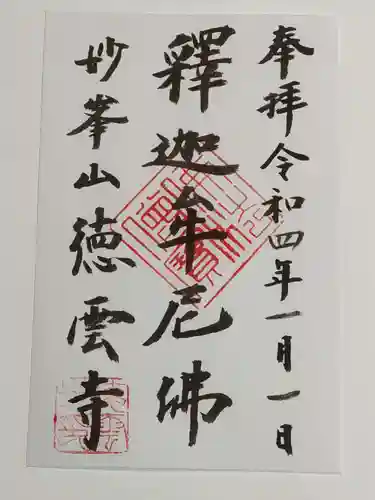 奉拝 令和四年一月一日
釋迦牟尼佛
妙峯山 徳雲寺